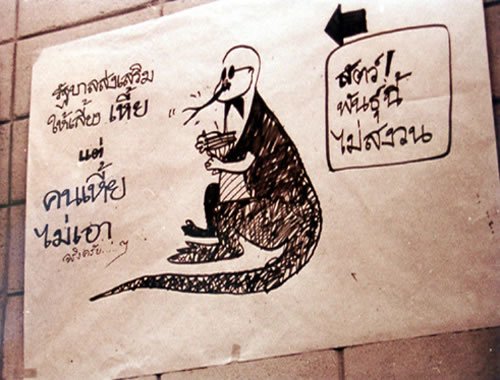 รัฐบาลส่งเสริม
ให้เลี้ยง เหี้ย
แต่
คนเหี้ย
ไม่เอา
จริงครับ......ๆ
สัตว์!
พันธุ์นี้
ไม่สงวน